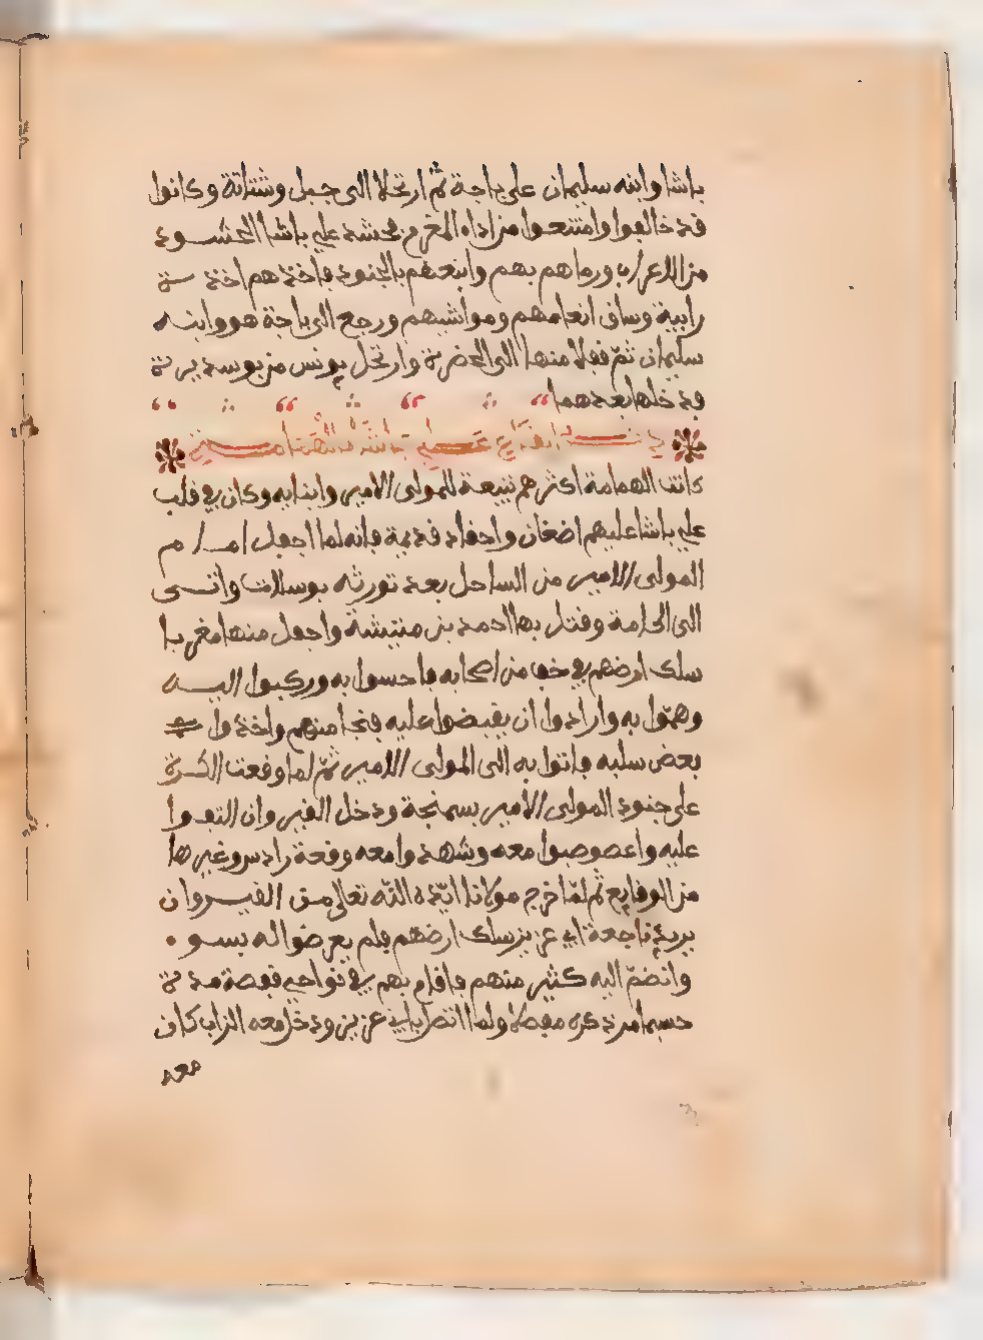 باشا وابنه سليمان على باجة ثم ارتحلا الى جبل وشتاتة وكانوا
قد خالفوا وامتنعوا من اداء المغرم فحشد علي باشا الحشود
من الاعراب ورماهم بهم واتبعهم بالجنود فاخذهم اخذة
رابية وساق انعامهم ومواشيهم ورجع الى باجة هو وابنه
سليمان ثم قفلا منها الى الحضرة وارتحل يونس من بوسديرة
فدخلها بعدهما
ايقاع علي باشا
كانت الهمامة اكثرهم شيعة للمولى الامير وابنايه وكان في قلب
علي باشا عليهم اضغان واحقاد قديمة فانه لما اجفل امام
المولى الامير من الساحل بعد ثورته بوسلات واتى
الى الحامة وقتل بها احمد بن منتيشة واجفل منها مغربا
سلك ارضهم في خف من اصحابه فاحسوا به وركبوا اليه
وهموا به وارادوا ان يقبضوا عليه فنجا منهم واخذوا
بعض سلبه واتوا به الى المولى الامير ثم لما وقعت الكسرة
على جنود المولى الامير بسمنجة ودخل القيروان التفوا
عليه واعصوصبوا معه وشهدوا معه وقعة رادس وغيرها
من الوقايع ثم لما خرج مولانا ايده الله تعالى من القيروان
يريد ناجعة ابي عزيز سلك ارضهم فلم يعرضوا له بسو
وانضم اليه كثير منهم فاقام بهم في نواحي قفصة مدة
حسبما مر ذكره مفصلا ولما اتصل بابي عزيز ودخل معه الزاب كان
معه